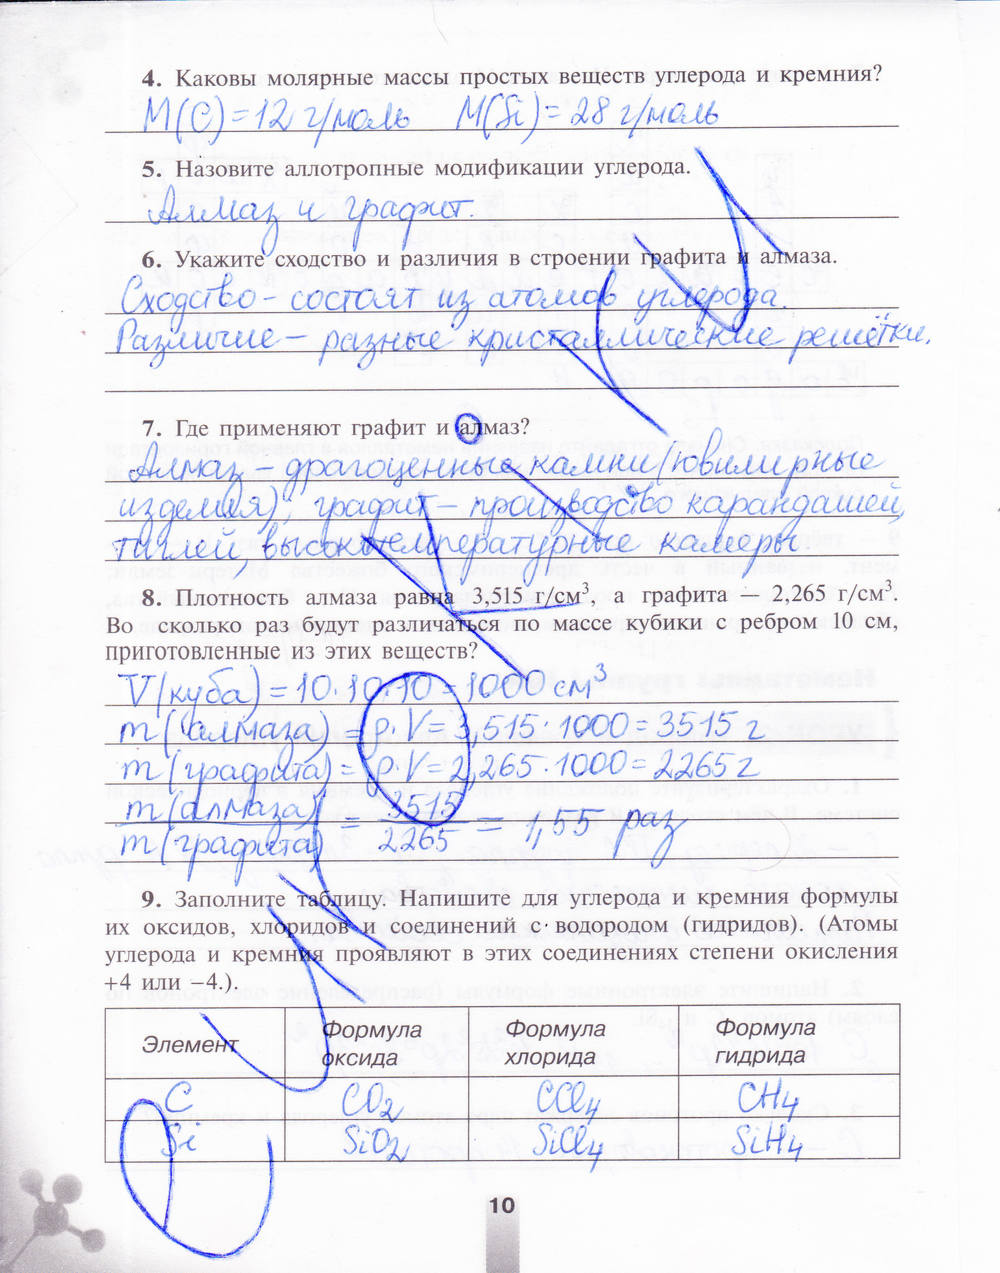 4. Каковы молярные массы простых веществ углерода и кремния?
M(C)=12 г/моль M(Si)=28 г/моль
5. Назовите аллотропные модификации углерода.
Алмаз и графит.
6. Укажите сходство и различия в строении графита и алмаза.
Сходство - состоят из атомов углерода.
Различие - разные кристаллические решётки.
7. Где применяют графит и алмаз?
Алмаз - драгоценные камни (ювилирные
изделия), графит - производство карандашей,
тиглей, высокотемпературные камеры.
8. Плотность алмаза равна 3,515 г/см³, а графита — 2,265 г/см³.
Во сколько раз будут различаться по массе кубики с ребром 10 см,
приготовленные из этих веществ?
V(куба)=10·10·10=1000 см³
m(алмаза)=ρ·V=3,515·1000=3515 г
m(графита)=ρ·V=2,265·1000=2265 г
m(алмаза) 3515
= = 1,55 раз
m(графита) 2265
9. Заполните таблицу. Напишите для углерода и кремния формулы
их оксидов, хлоридов и соединений с водородом (гидридов). (Атомы
углерода и кремния проявляют в этих соединениях степени окисления
+4 или –4.).
Элемент Формула оксида Формула хлорида Формула гидрида
C CO₂ CCl₄ CH₄
Si SiO₂ SiCl₄ SiH₄
10